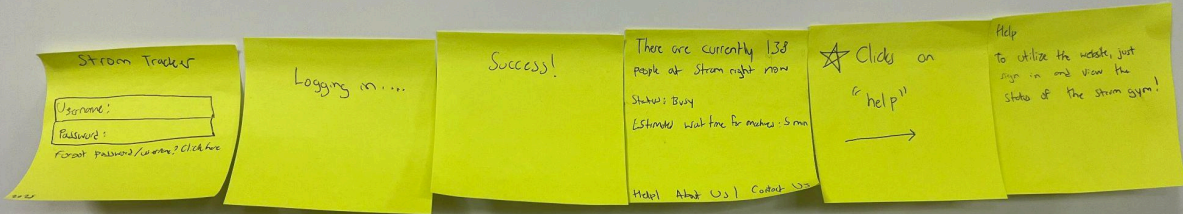 Strom Tracker
Username:
Password:
Forgot Password/username? Click here
Logging in....
Success!
There are currently 138
people at Strom right now
Status: Busy
Estimated wait time for machines: 5 min
Help| About Us| Contact Us
Clicks on
"help"
Help
To utilize the website, just
sign in and view the
status of the Strom gym!